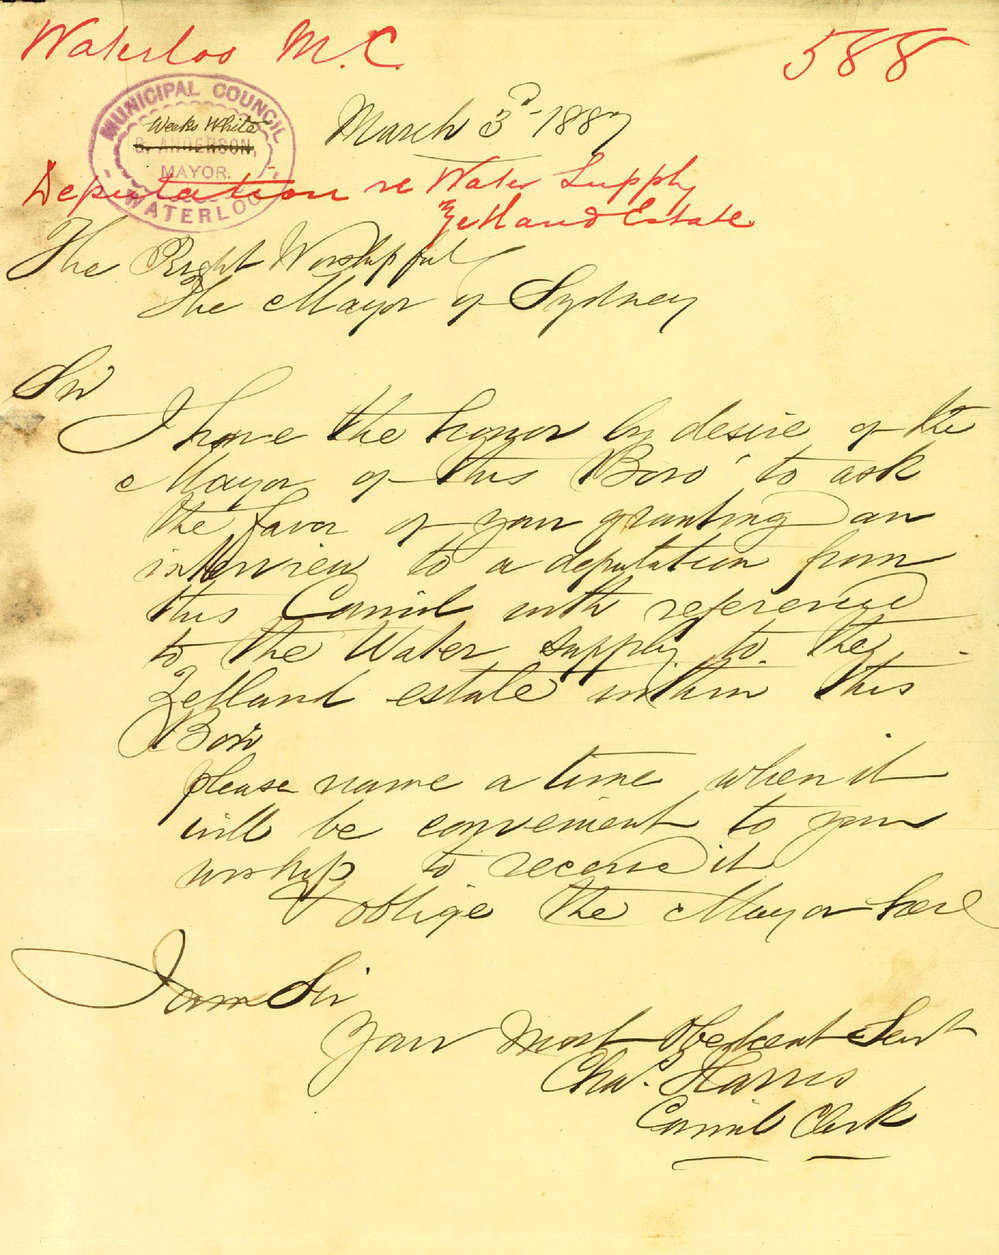 Waterloo M.C. 588
MUNICIPAL COUNCIL
Weeks White
S. ANDERSON,
MAYOR.
WATERLOO
March 3d 1887
Deputation re Water Supply
Zetland Estate
The Right Worshipful
The Mayor of Sydney
Sir
I have the honor by desire of the
Mayor of this Boro' to ask
the favor of your granting an
interview to a deputation from
this Council with reference
to the Water supply to the
Zetland estate within this
Boro
please name a time when it
will be convenient to your
worship to receive it
& oblige the Mayor here
I am Sir
Your Most Obedient Servt
Chas. Harris
Council Clerk